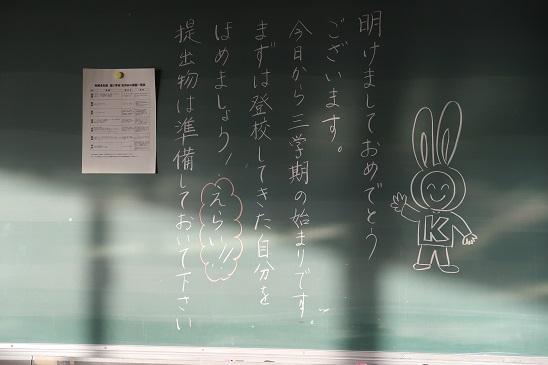 明けましておめでとう
ございます。
今日から三学期の始まりです。
まずは登校してきた自分を
ほめましょう!
えらい!!
提出物は準備しておいて下さい
K